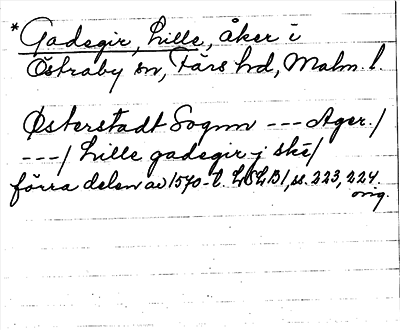 * Gadegir, Lille, åker i
Östraby sn, Färs hd, Malm. l.
Østerstadt Sognn --- Ager./
---/ Lille gadegir j skē/
förra delen av 1570-t. LSLB1, ss. 223, 224.
orig.